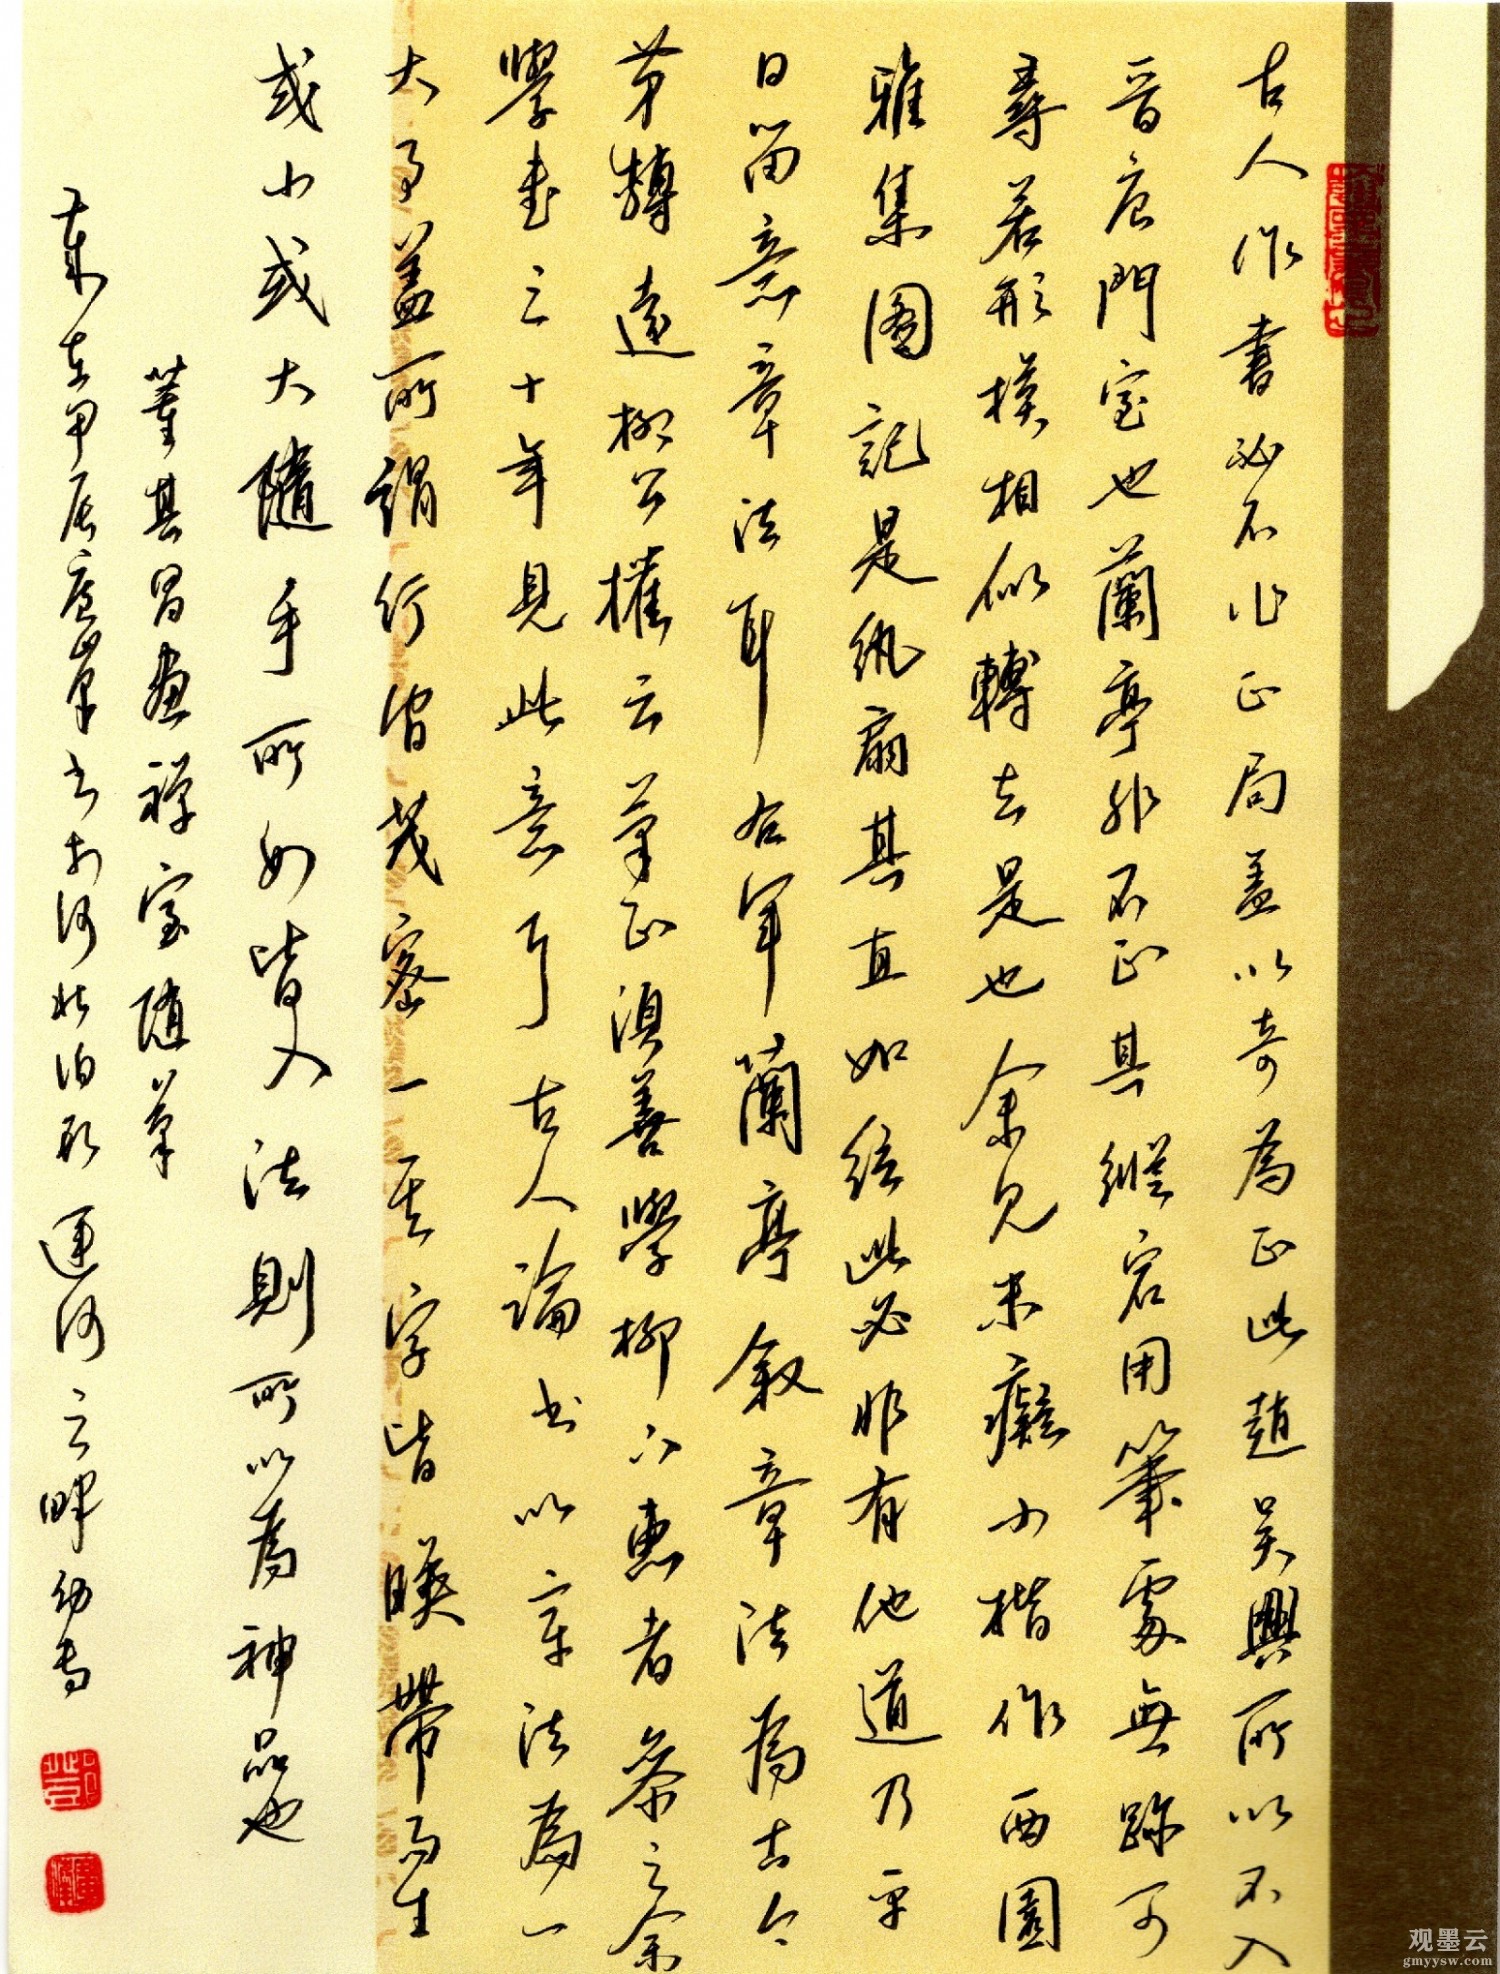 古人作書必不作正局蓋以奇為正此趙吳興所以不入
晉唐門室也蘭亭非不正其縱宕用筆處無跡可
尋若形模相似轉去是也余見米癡小楷作西園
雅集图記是紈扇其直如弦此必非有他道乃平
日留意章法耳右軍蘭亭敘章法為古今
第轉遠柳公權云筆正須善學柳下惠者參之余
學書三十年見此意耳古人論書以章法為一
大事蓋所謂行間茂密一其字皆映帶而生
或小或大隨手所如皆入法則所以為神品也
董其昌画禅室随筆
歲在甲辰書於河北泊頭運河之畔
观墨云
gmyysw.com